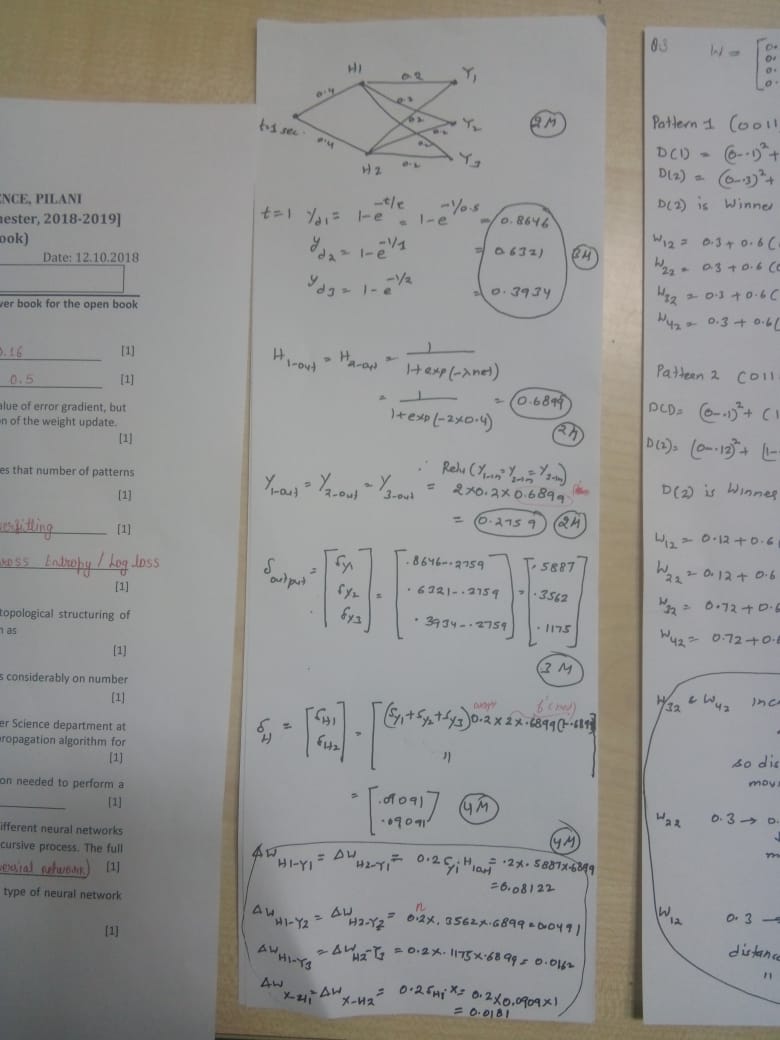 NCE, PILANI
nester, 2018-2019]
ook)
Date: 12.10.2018
ver book for the open book
0.16 [1]
0.5 [1]
alue of error gradient, but
n of the weight update.
[1]
es that number of patterns
[1]
verfitting [1]
ross Entropy / Log loss
[1]
topological structuring of
n as
[1]
s considerably on number
[1]
er Science department at
ropagation algorithm for
[1]
on needed to perform a
[1]
ifferent neural networks
cursive process. The full
versial network) [1]
type of neural network
[1]
H1 0.2 Y1
0.4 0.2
0.2 Y2
t=1 sec. 0.2
0.4 0.2
H2 0.2 Y3
2M
t=1 yd1 = 1-e^-t/τ = 1-e^-1/0.5 = 0.8646
yd2 = 1-e^-1/1 = 0.6321 3M
yd3 = 1-e^-1/2 = 0.3934
H1-out = H2-out = 1/(1+exp(-λnet))
= 1/(1+exp(-2×0.4)) = 0.6899
2M
Y1-out = Y2-out = Y3-out = Relu (Y1-in = Y2-in = Y3-in)
2×0.2×0.6899
= 0.2759 2M
δoutput = [δy1 δy2 δy3] = [.8646-.2759 .6321-.2759 .3934-.2759] = [.5887 .3562 .1175]
3M
δH = [δH1 δH2] = [(δy1+δy2+δy3)0.2×2×.6899(1-.6899) "]
f'(net)
= [.09091 .09091] 4M
4M
ΔW H1-Y1 = ΔW H2-Y1 = 0.2 δy1 H1out = .2×.5887×.6899
=0.08122
η
ΔW H1-Y2 = ΔW H2-Y2 = 0.2×.3562×.6899=0.0491
ΔW H1-Y3 = ΔW H2-Y3 = 0.2×.1175×.6899= 0.0162
ΔW X-H1 = ΔW X-H2 = 0.2 δH1 . x = 0.2×0.0909×1
= 0.0181
Q3 W = [0. 0. 0. 0.
Pattern 1 (0011
D(1) = (0-.1)²+
D(2) = (0-.3)²+
D(2) is Winner
W12 = 0.3 + 0.6(
W22 = 0.3 + 0.6(0
W32 = 0.3 + 0.6(
W42 = 0.3 + 0.6(
Pattern 2 (011
D(1)= (0-.1)²+ (1
D(2)= (0-.12)²+ (1-
D(2) is Winner
W12 = 0.12 + 0.6
W22 = 0.12 + 0.6
W32 = 0.72 + 0.6
W42 = 0.72 + 0.6
W32 & W42 inc
so dis
mov
W22 0.3 → 0.
m
W12 0.3 →
distance
"